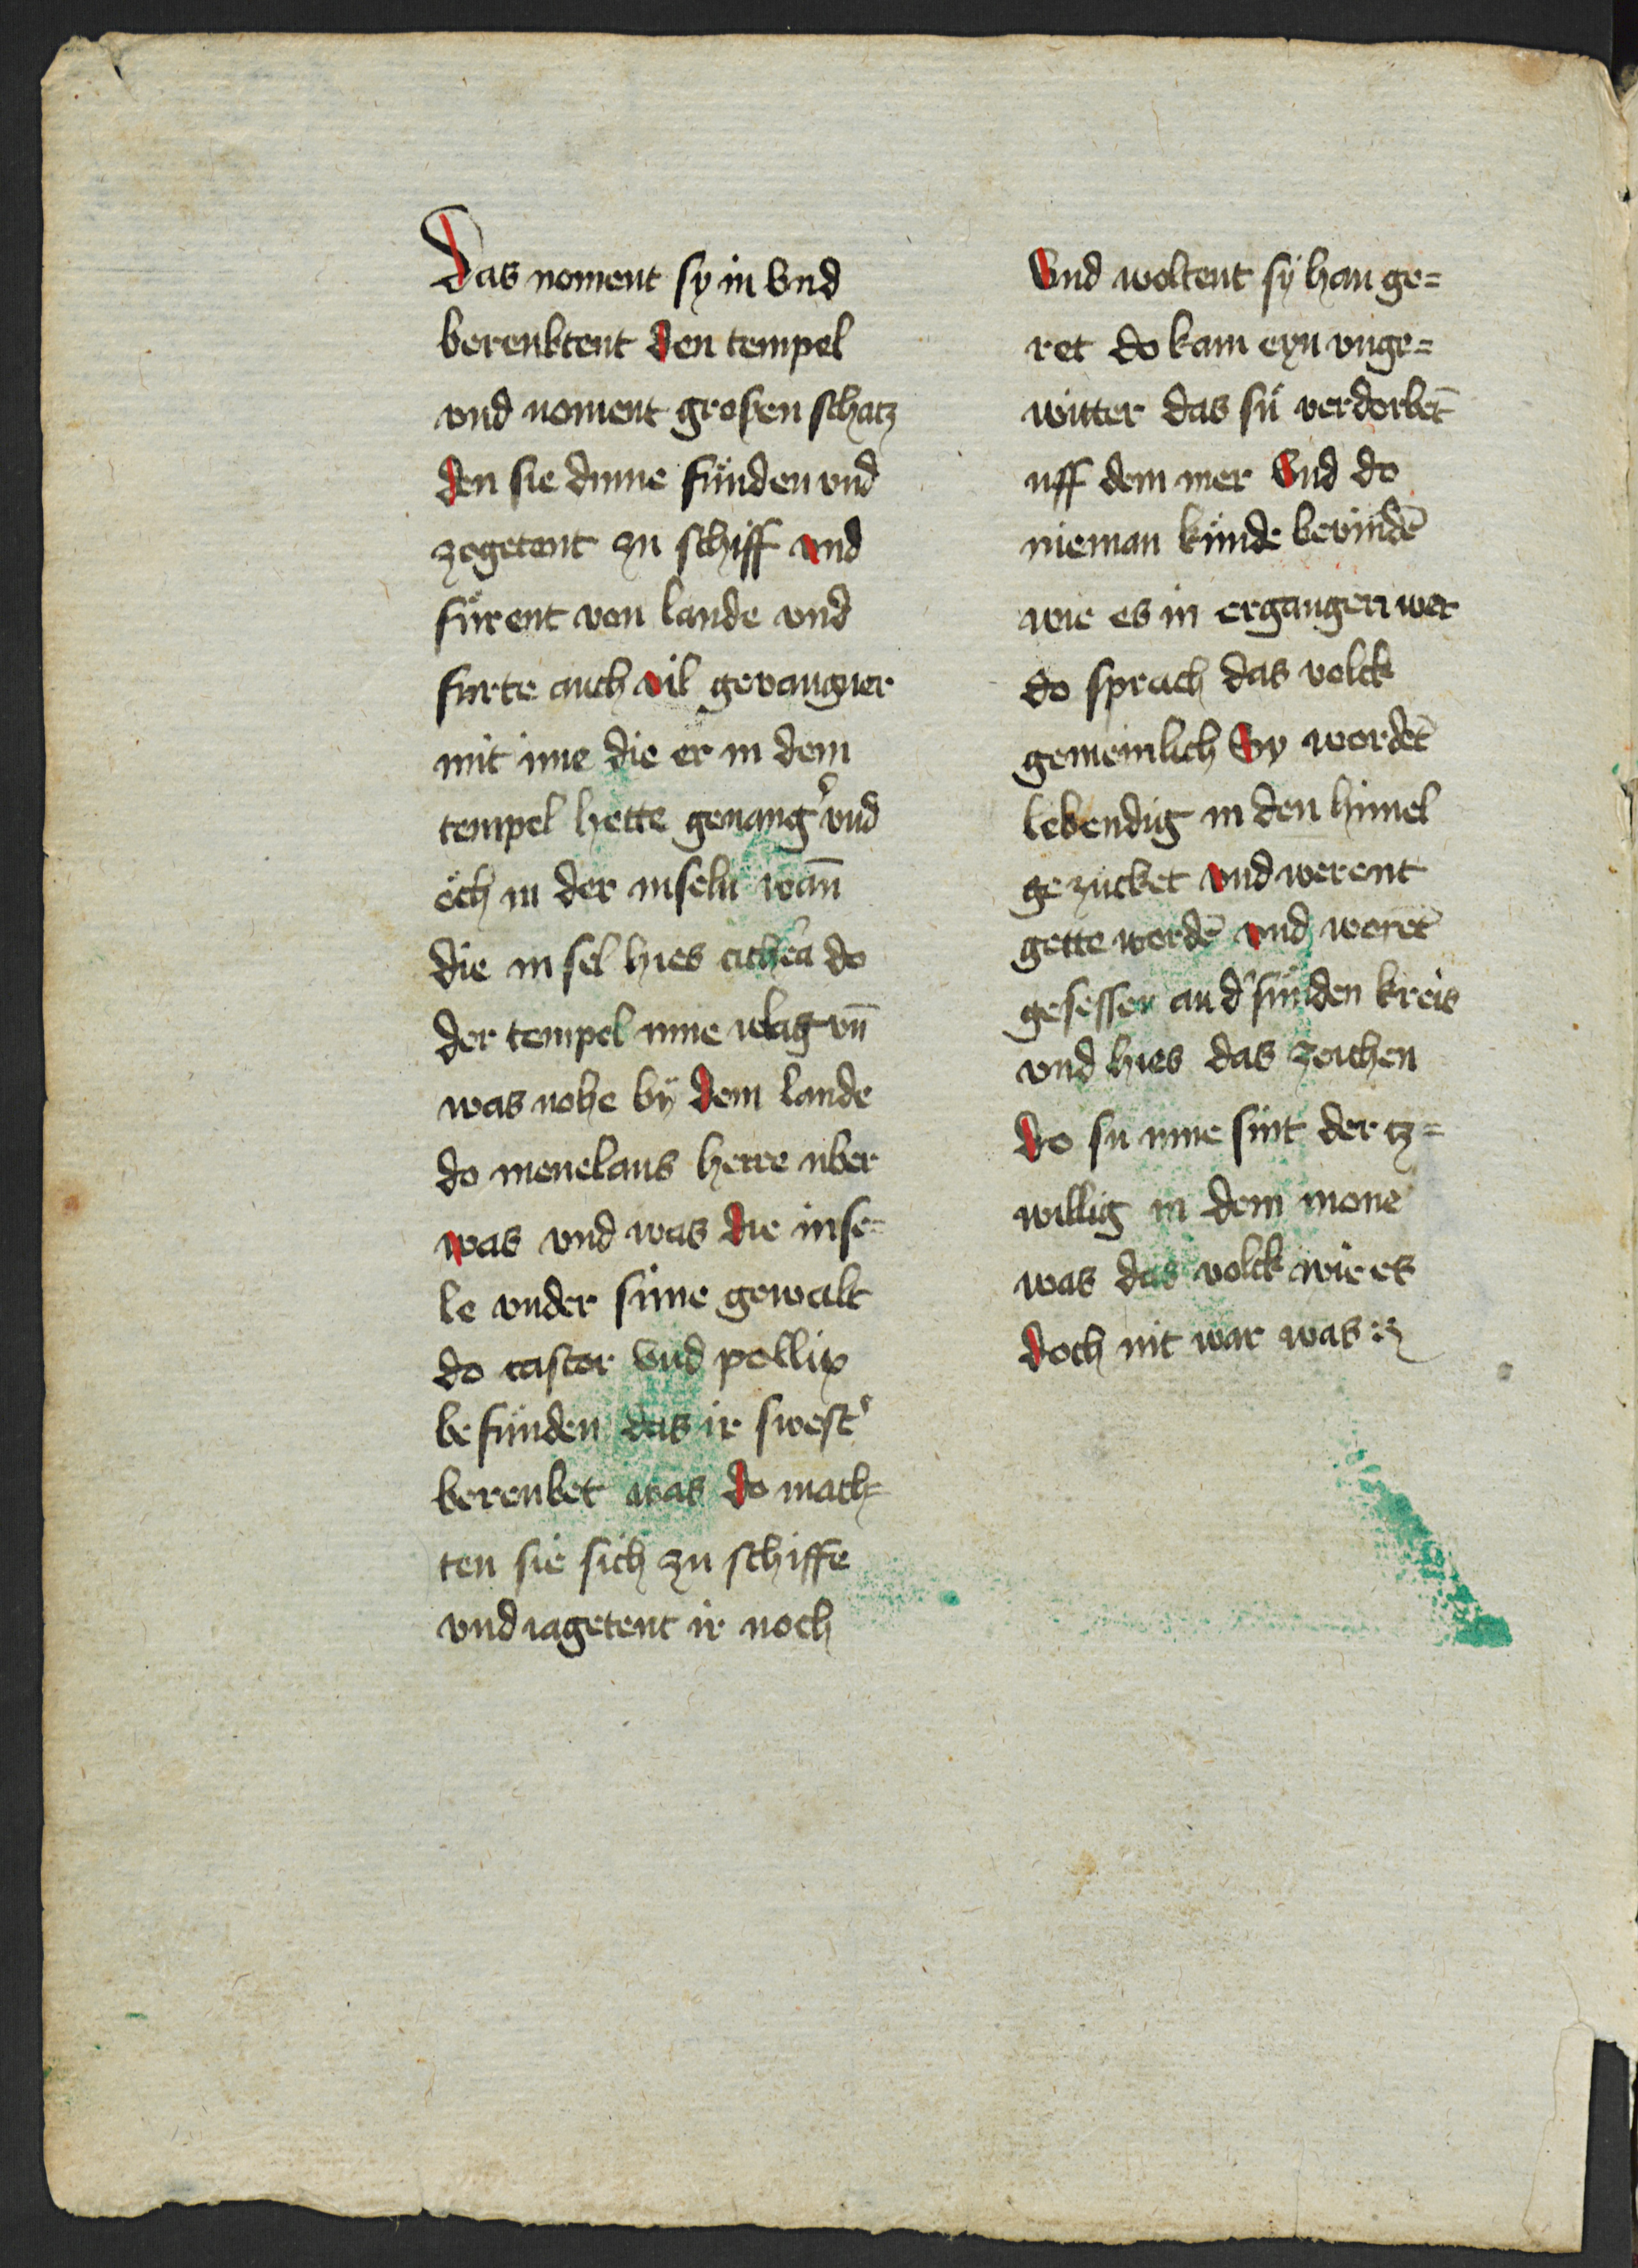 Das noment sy in vnd
berenktent den tempel
vnd noment grosen schatz
den sie dinne fünden vnd
zogetent zu schiff vnd
fürent von lande vnd
furte auch vil gevangner
mit ime die er in dem
tempel hette gevang' vnd
öch in der inseln wan̄
die in sel hies cithea do
der tempel inne lag vn̄
was nohe bÿ dem lande
do menelaus herre uber
was vnd was die inse-
le vnder sime gewalt
do castor vnd pollix
be fünden das ir swest'
berenbet was do mach-
ten sie sich zu schiffe
vnd iagetent ir noch
Vnd woltent sÿ han ge-
ret do kam eyn vnge-
witter das sü verdorbet̄
uff dem mer Vnd do
nieman künde bevindē
wie es in ergangen wer
do sprach das volck
gemeinlich Sy wordet̄
lebendig in den himel
gezücket vnd werent
gette wordē vnd weret̄
gesessen an d' sünden kreis
vnd hies das zeichen
do su inne sint der tz-
willig in dem mone
was das volck wie es
doch nit war was